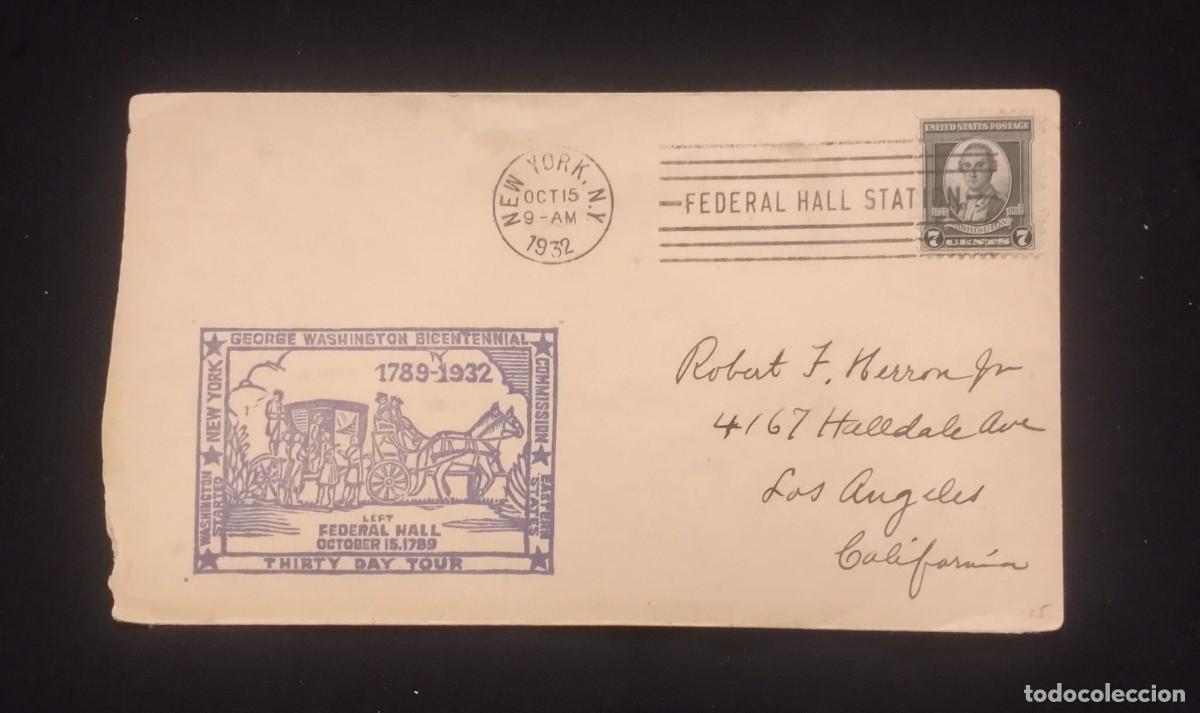 NEW YORK, N.Y.
OCT 15
9-AM
1932
FEDERAL HALL STATION
UNITED STATES POSTAGE
WASHINGTON
7 CENTS 7
GEORGE WASHINGTON BICENTENNIAL
COMMISSION
EASTERN STATES
NEW YORK
WASHINGTON STARTED
1789-1932
LEFT
FEDERAL HALL
OCTOBER 15, 1789
THIRTY DAY TOUR
Robert F. Herron Jr
4167 Halldale Ave
Los Angeles
California
15
todocoleccion